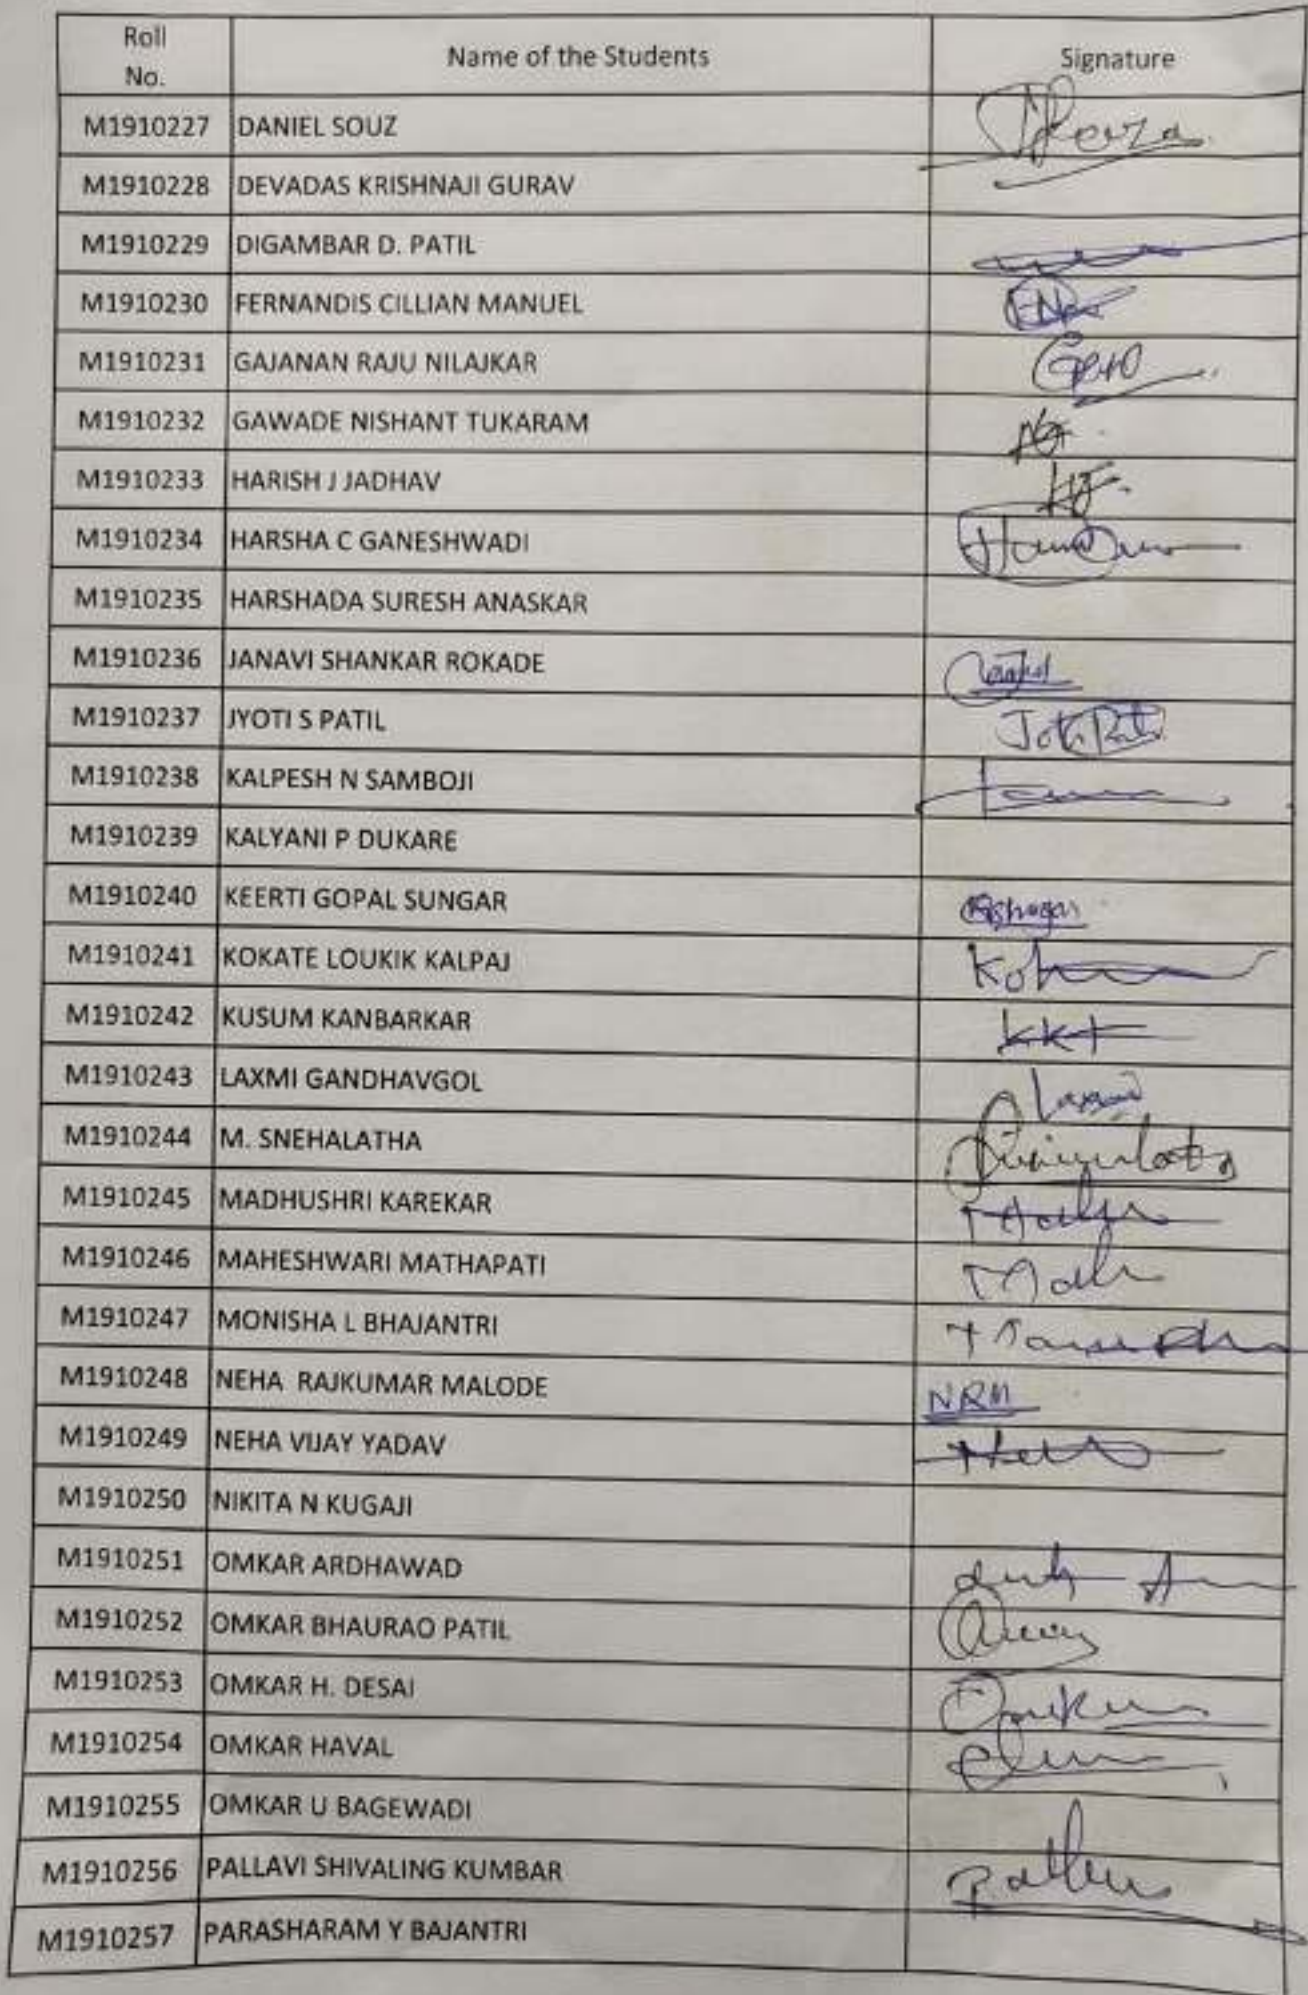 Roll No. Name of the Students Signature
M1910227 DANIEL SOUZ
M1910228 DEVADAS KRISHNAJI GURAV
M1910229 DIGAMBAR D. PATIL
M1910230 FERNANDIS CILLIAN MANUEL
M1910231 GAJANAN RAJU NILAJKAR
M1910232 GAWADE NISHANT TUKARAM
M1910233 HARISH J JADHAV
M1910234 HARSHA C GANESHWADI
M1910235 HARSHADA SURESH ANASKAR
M1910236 JANAVI SHANKAR ROKADE
M1910237 JYOTI S PATIL
M1910238 KALPESH N SAMBOJI
M1910239 KALYANI P DUKARE
M1910240 KEERTI GOPAL SUNGAR
M1910241 KOKATE LOUKIK KALPAJ
M1910242 KUSUM KANBARKAR
M1910243 LAXMI GANDHAVGOL
M1910244 M. SNEHALATHA
M1910245 MADHUSHRI KAREKAR
M1910246 MAHESHWARI MATHAPATI
M1910247 MONISHA L BHAJANTRI
M1910248 NEHA RAJKUMAR MALODE NRM
M1910249 NEHA VIJAY YADAV
M1910250 NIKITA N KUGAJI
M1910251 OMKAR ARDHAWAD
M1910252 OMKAR BHAURAO PATIL
M1910253 OMKAR H. DESAI
M1910254 OMKAR HAVAL
M1910255 OMKAR U BAGEWADI
M1910256 PALLAVI SHIVALING KUMBAR
M1910257 PARASHARAM Y BAJANTRI